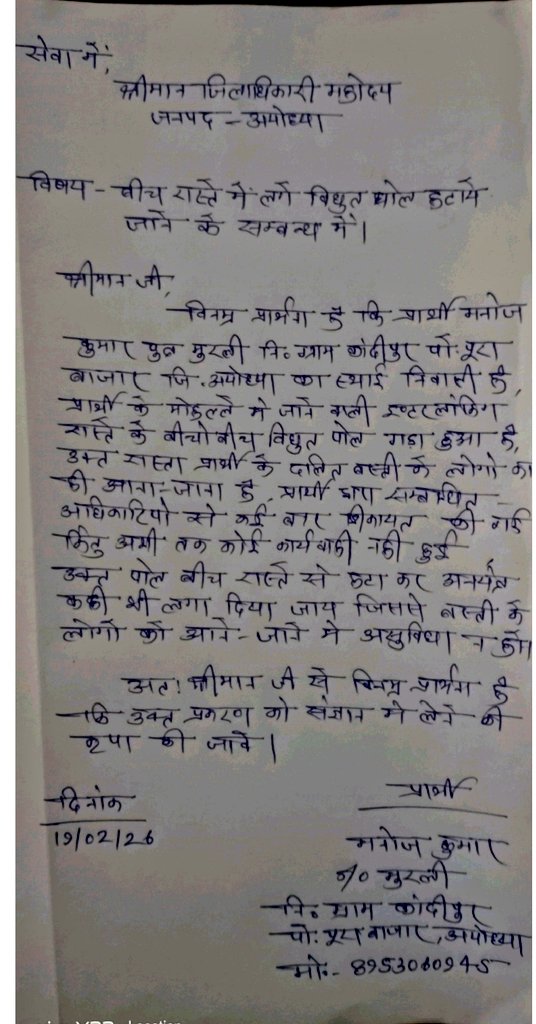 सेवा में,
श्रीमान जिलाधिकारी महोदय
जनपद - अयोध्या
विषय - बीच रास्ते में लगे विधुत पोल हटाये
जाने के सम्बन्ध में।
श्रीमान जी,
विनम्र प्रार्थना है कि प्रार्थी मनोज
कुमार पुत्र मुरली नि० ग्राम कांदीपुर पो: पूरा
बाजार जि. अयोध्या का स्थाई निवासी है,
प्रार्थी के मोहल्ले मे जाने वाली इण्टरलॉकिग
रास्ते के बीचोबीच विधुत पोल गडा हुआ है,
उक्त रास्ता प्रार्थी के दलित बस्ती के लोगो का
ही आना-जाना है, प्रार्थी द्वारा सम्बन्धित
अधिकारियो से कई बार शिकायत की गई
किंतु अभी तक कोई कार्यवाही नही हुई
उक्त पोल बीच रास्ते से हटा कर अन्यत्र
कही भी लगा दिया जाय जिससे बस्ती के
लोगो को आने-जाने मे असुविधा न हो।
अतः श्रीमान जी से विनम्र प्रार्थना है
कि उक्त प्रकरण को संज्ञान मे लेने की
कृपा की जावे।
दिनांक
19/02/26
प्रार्थी
मनोज कुमार
s/o मुरली
नि० ग्राम कांदीपुर
पो: पूरा बाजार, अयोध्या
मो:- 8953060945